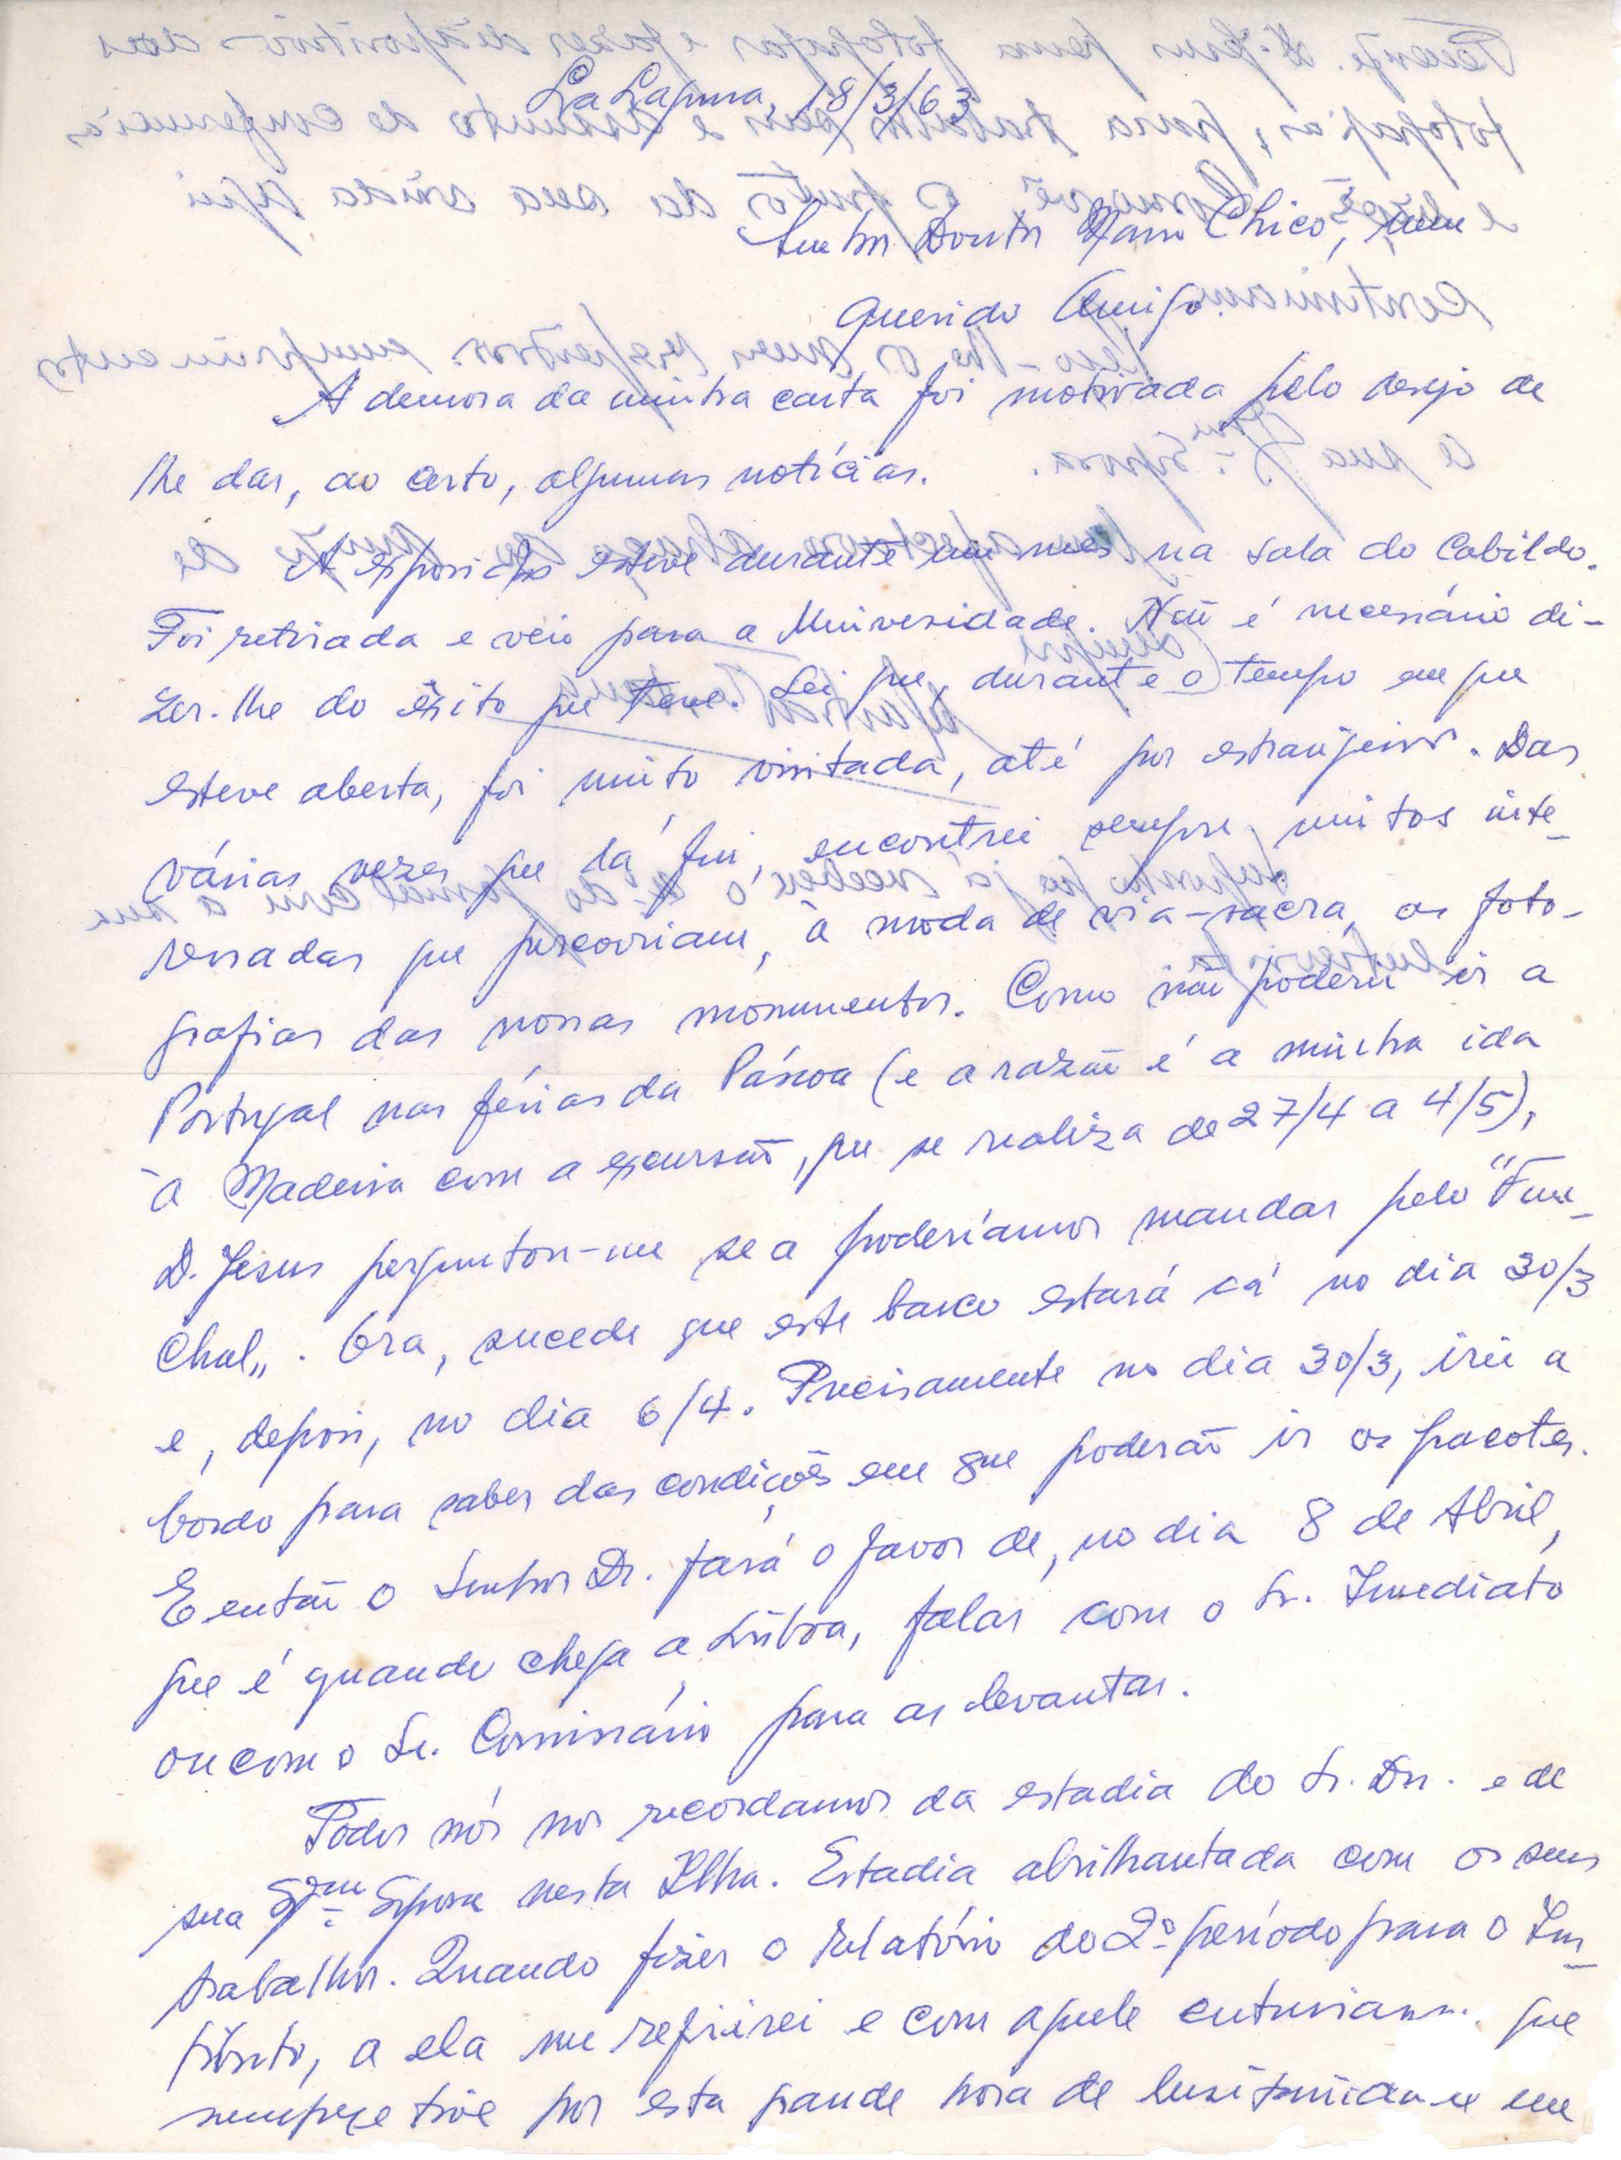 La Laguna, 18/3/63
Senhor Doutor Mário Chicó, meu
querido Amigo.
A demora da minha carta foi motivada pelo desejo de
lhe dar, ao certo, algumas notícias.
A exposição esteve durante um mês na sala do Cabildo.
Foi retirada e veio para a Universidade. Não é necessário di-
zer-lhe do êxito que teve. Sei que, durante o tempo em que
esteve aberta, foi muito visitada, até por estrangeiros. Das
várias vezes que lá fui, encontrei sempre muitos inte-
ressados que percorriam, à moda de via-sacra, as foto-
grafias dos nossos monumentos. Como não poderei ir a
Portugal nas férias da Páscoa (e a razão é a minha ida
à Madeira com a excursão, que se realiza de 27/4 a 4/5),
D. Jesus perguntou-me se a poderíamos mandar pelo "Fun-
chal". Ora, sucede que este barco estará cá no dia 30/3
e, depois, no dia 6/4. Precisamente no dia 30/3, irei a
bordo para saber das condições em que poderão ir os pacotes.
E então o Senhor Dr. fará o favor de, no dia 8 de Abril,
que é quando chega a Lisboa, falar com o Sr. Imediato
ou com o Sr. Comissário para as levantar.
Todos nós nos recordamos da estadia do Sr. Dr. e de
sua Exma Esposa nesta Ilha. Estadia abrilhantada com os seus
trabalhos. Quando fizer o relatório do 2º período para o Ins-
tituto, a ela me referirei e com aquele entusiasm que
sempre tive por esta grande hora de lusitanidade em